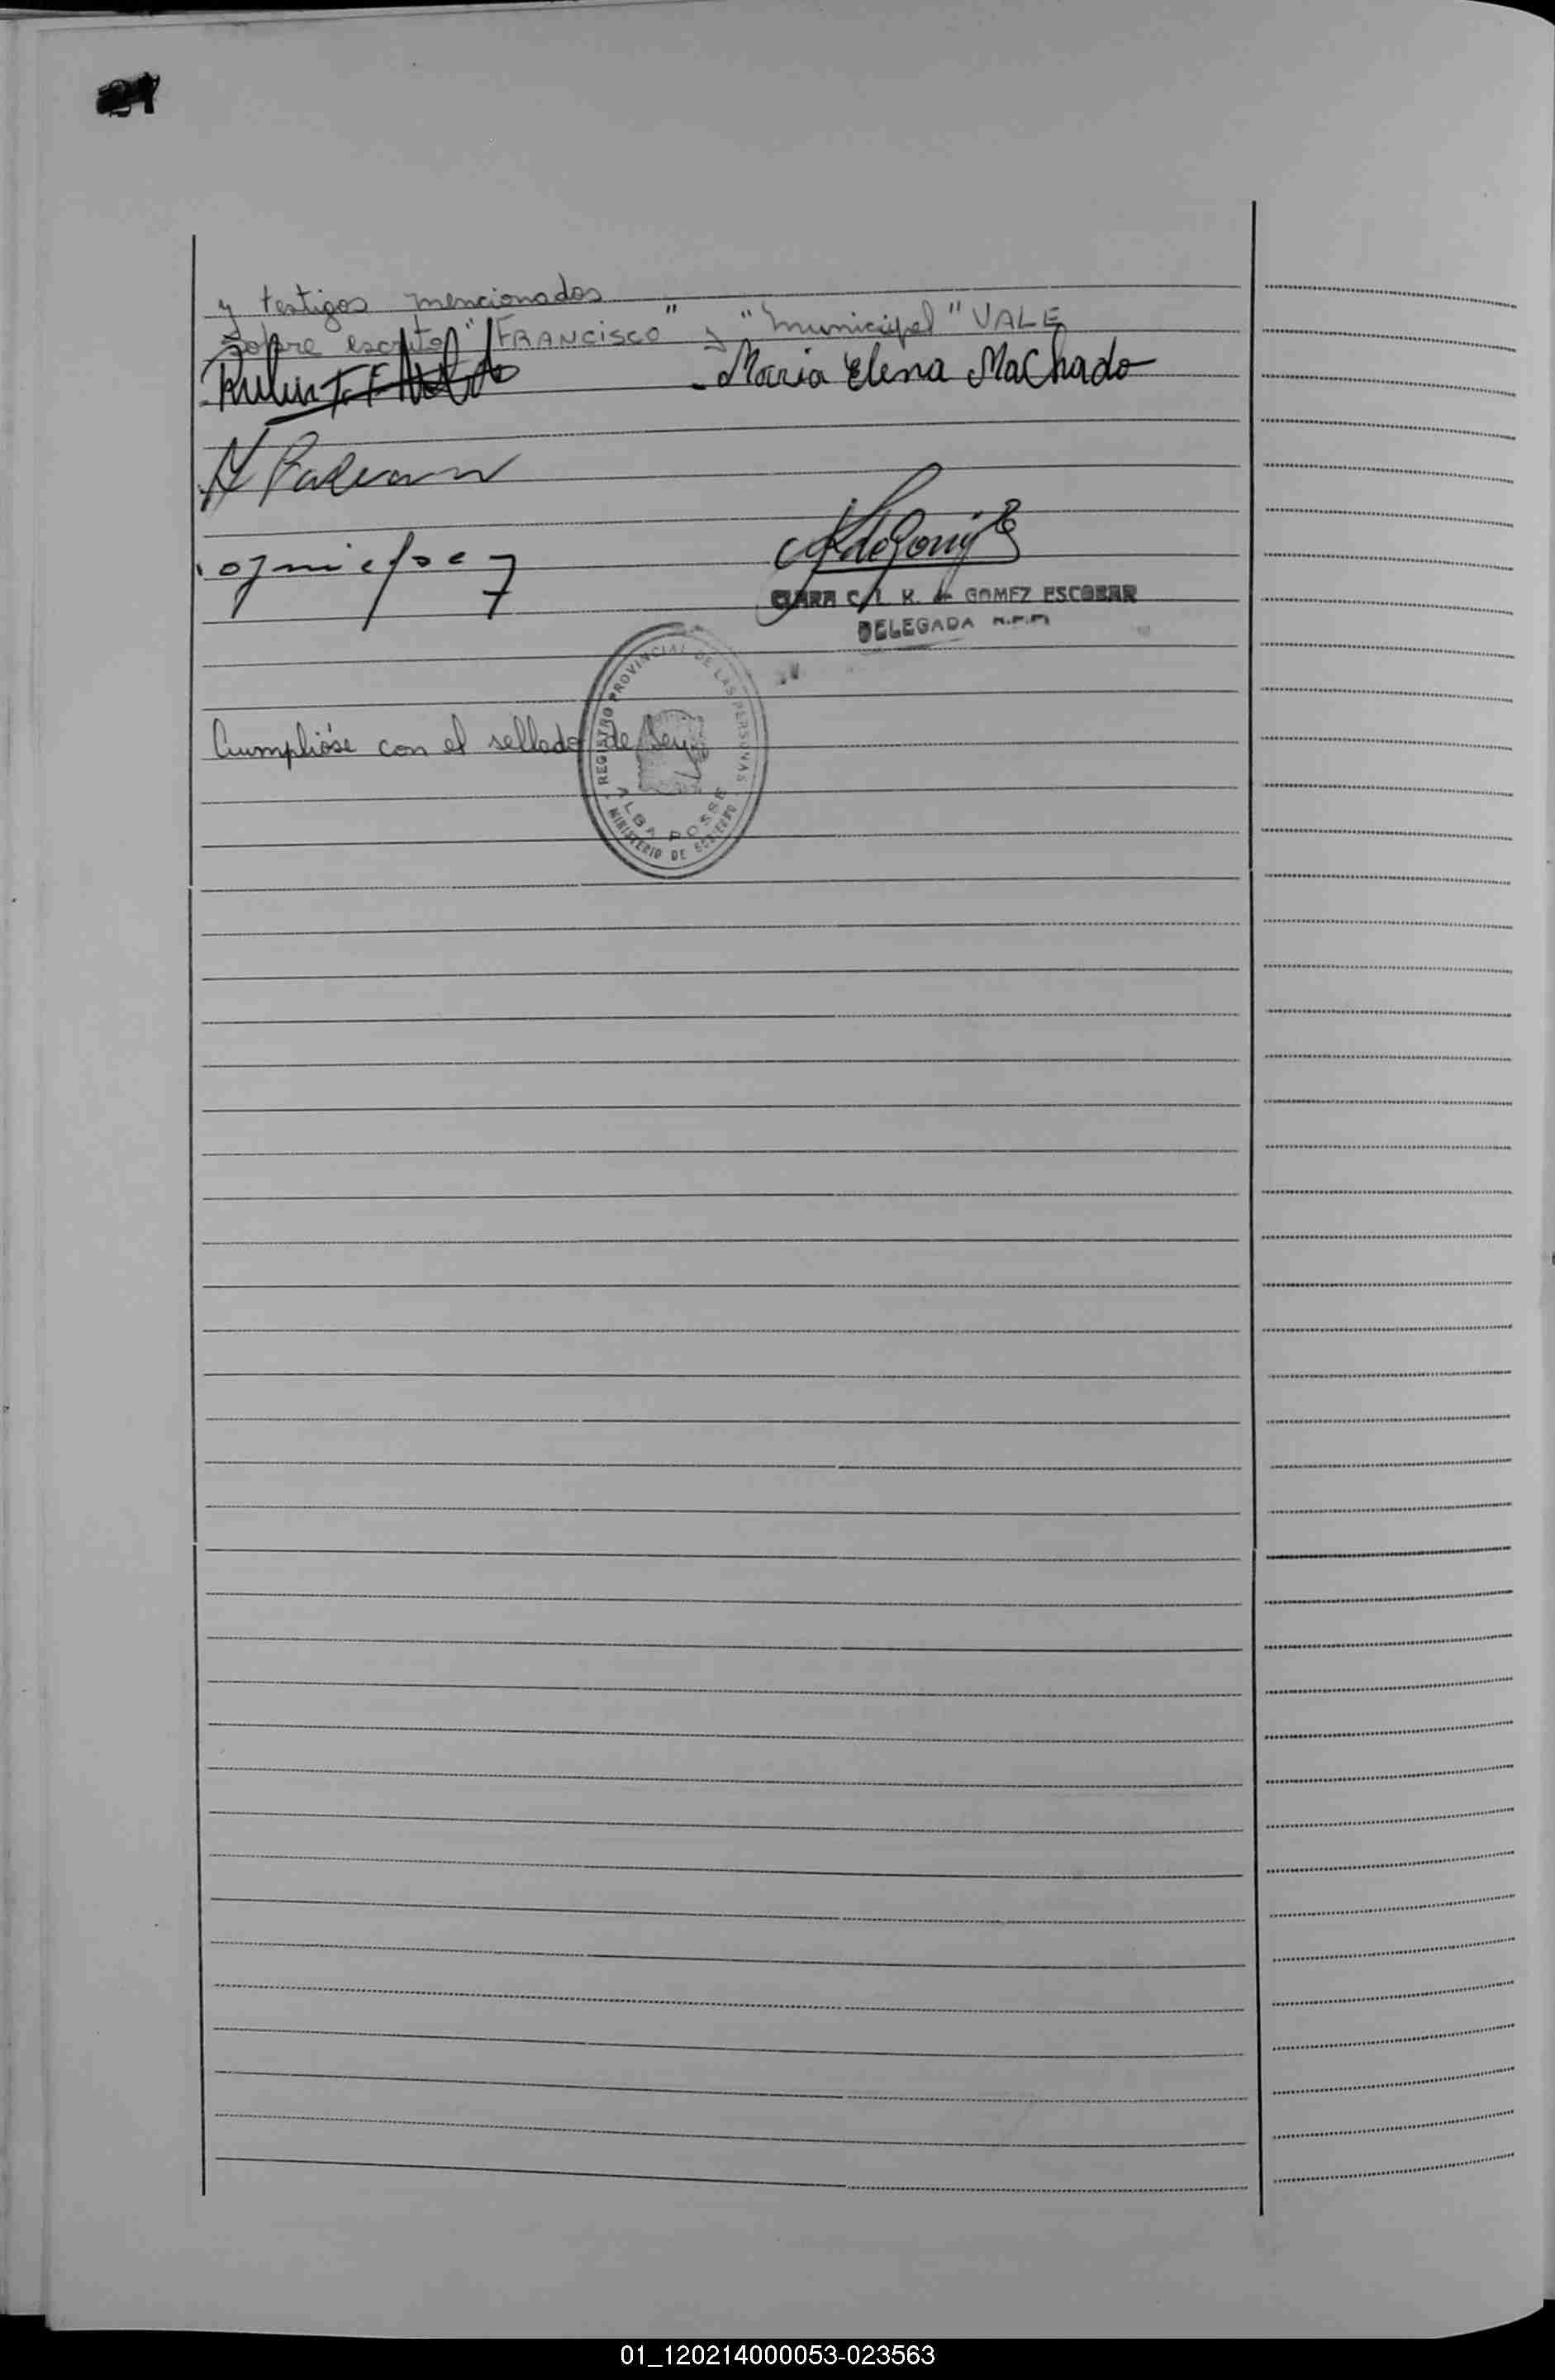 y testigos mencionados
Sobre escrito "FRANCISCO" y "municipal" VALE
Maria Elena Machado
CLARA C. L. K. de GOMEZ ESCOBAR
DELEGADA R.P.P.
REGISTRO PROVINCIAL DE LAS PERSONAS
Cumplióse con el sellado de Ley
ALBA POSSE
MINISTERIO DE GOBIERNO
01_120214000053-023563